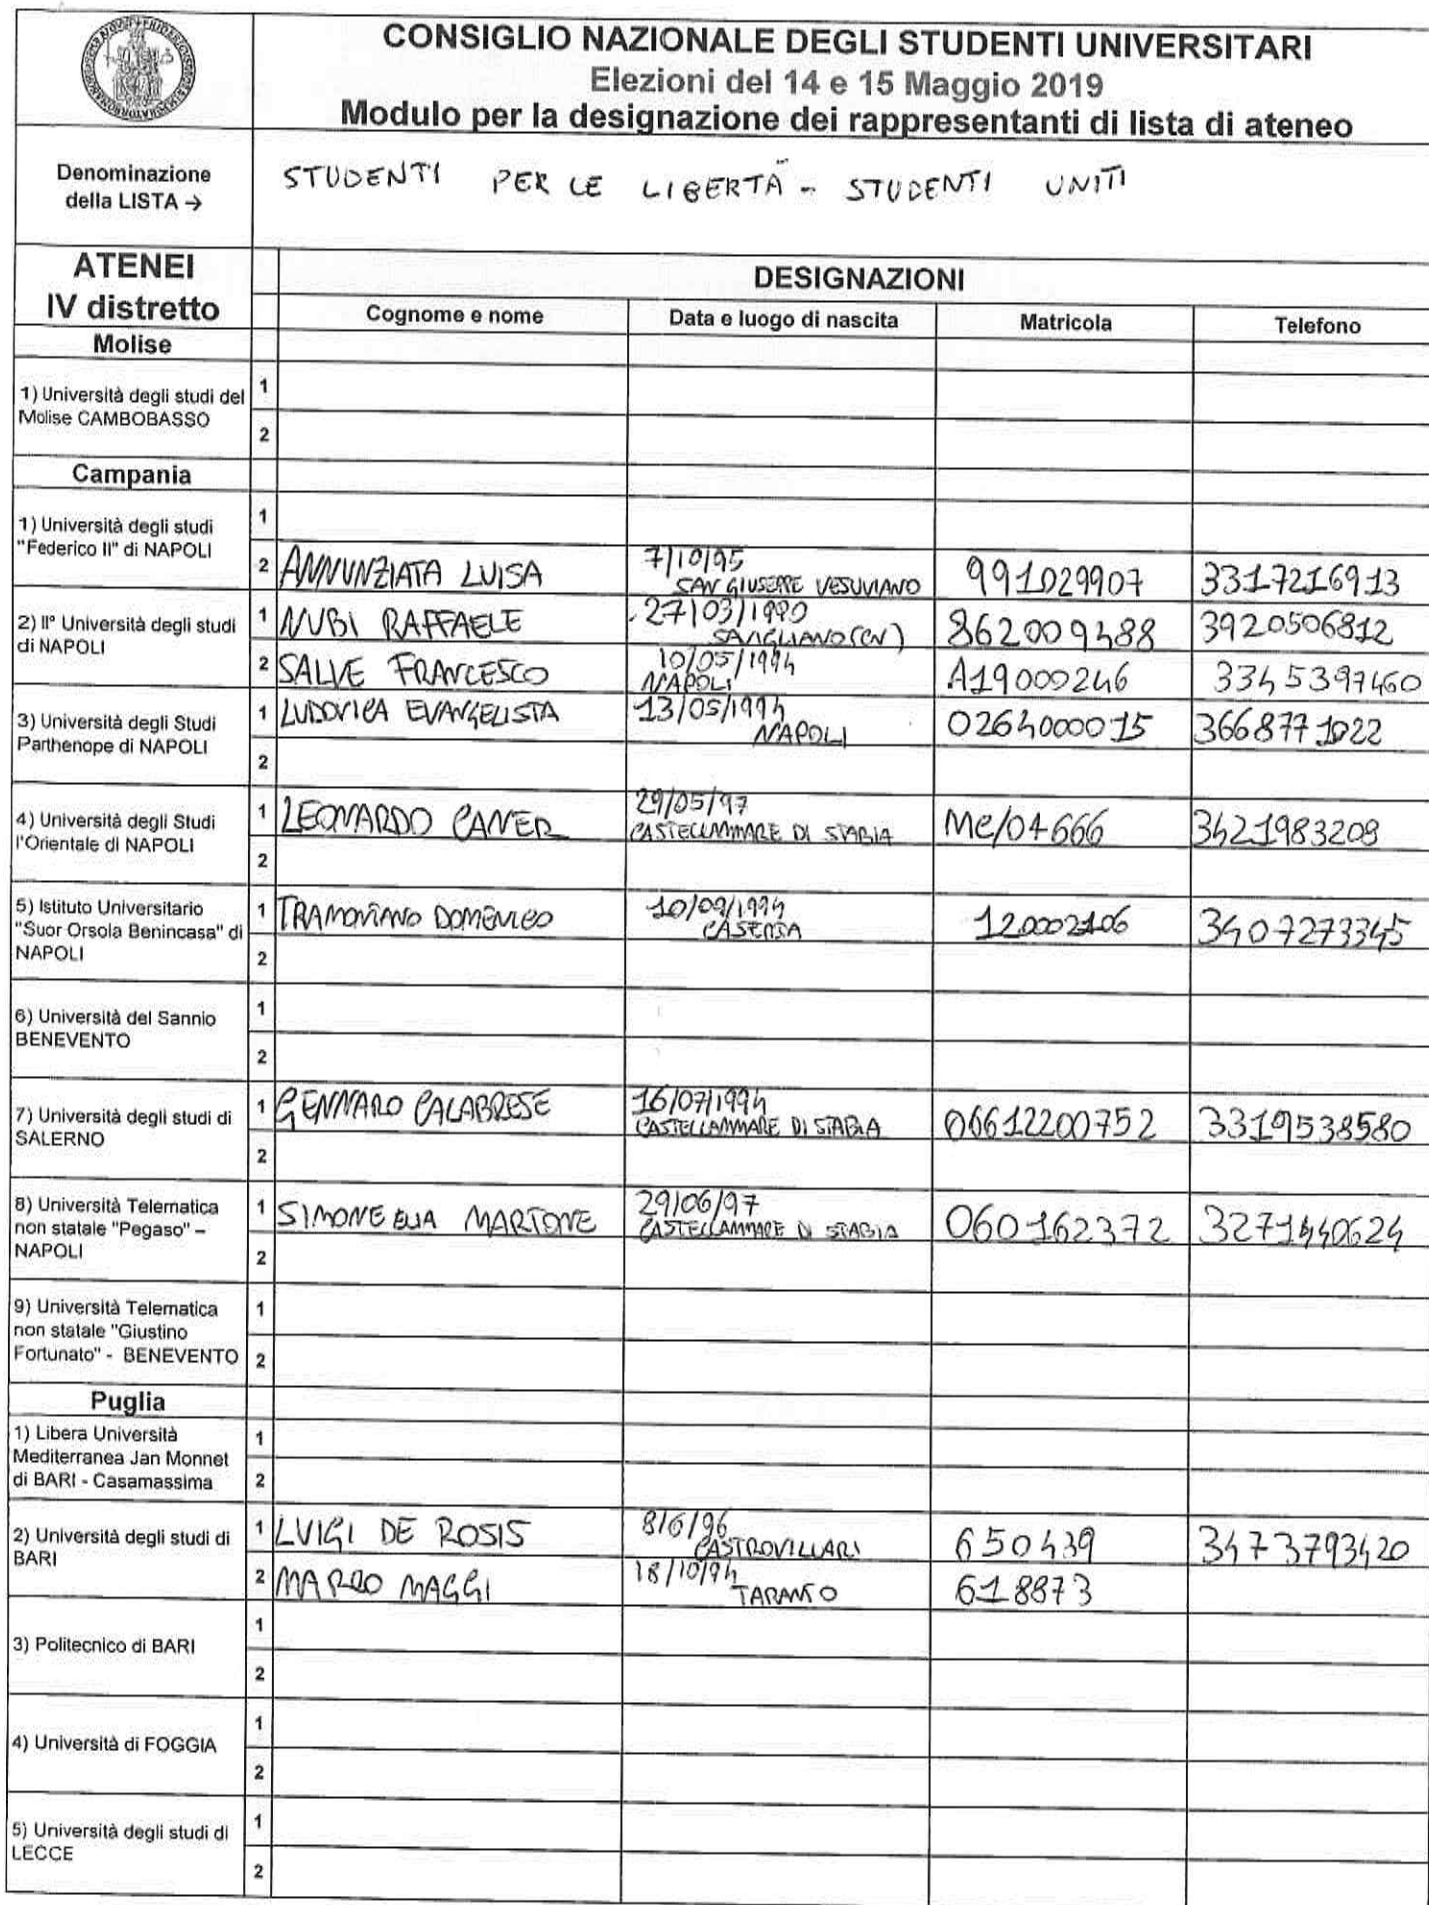 CONSIGLIO NAZIONALE DEGLI STUDENTI UNIVERSITARI
Elezioni del 14 e 15 Maggio 2019
Modulo per la designazione dei rappresentanti di lista di ateneo
Denominazione
della LISTA →
STUDENTI PER LE LIBERTÀ - STUDENTI UNITI
ATENEI
IV distretto
DESIGNAZIONI
Cognome e nome Data e luogo di nascita Matricola Telefono
Molise
1) Università degli studi del
Molise CAMBOBASSO
1
2
Campania
1) Università degli studi
"Federico II" di NAPOLI
1
2 ANNUNZIATA LUISA 7/10/95
SAN GIUSEPPE VESUVIANO 991029907 3317216913
2) II° Università degli studi
di NAPOLI
1 NUBI RAFFAELE 27/03/1990
862009488 3920506812
2 SALVE FRANCESCO 10/05/1994
NAPOLI A19000246 3345397460
3) Università degli Studi
Parthenope di NAPOLI
1 LUDOVICA EVANGELISTA 13/05/1994
NAPOLI 0264000015 3668771022
2
4) Università degli Studi
l'Orientale di NAPOLI
1 LEONARDO CANER 29/05/97
CASTELLAMMARE DI STABIA ME/04666 3421983208
2
5) Istituto Universitario
"Suor Orsola Benincasa" di
NAPOLI
1 TRAMONTANO DOMENICO 10/09/1994
CASERTA 120002106 3407273345
2
6) Università del Sannio
BENEVENTO
1
2
7) Università degli studi di
SALERNO
1 GENNARO CALABRESE 16/07/1994
CASTELLAMMARE DI STABIA 06612200752 3319538580
2
8) Università Telematica
non statale "Pegaso" –
NAPOLI
1 SIMONE ELIA MARTONE 29/06/97
CASTELLAMMARE DI STABIA 060162372 3271440624
2
9) Università Telematica
non statale "Giustino
Fortunato" - BENEVENTO
1
2
Puglia
1) Libera Università
Mediterranea Jan Monnet
di BARI - Casamassima
1
2
2) Università degli studi di
BARI
1 LUIGI DE ROSIS 8/6/96
CASTROVILLARI 650439 3473793420
2 MARCO MAGGI 18/10/94
TARANTO 618873
3) Politecnico di BARI
1
2
4) Università di FOGGIA
1
2
5) Università degli studi di
LECCE
1
2